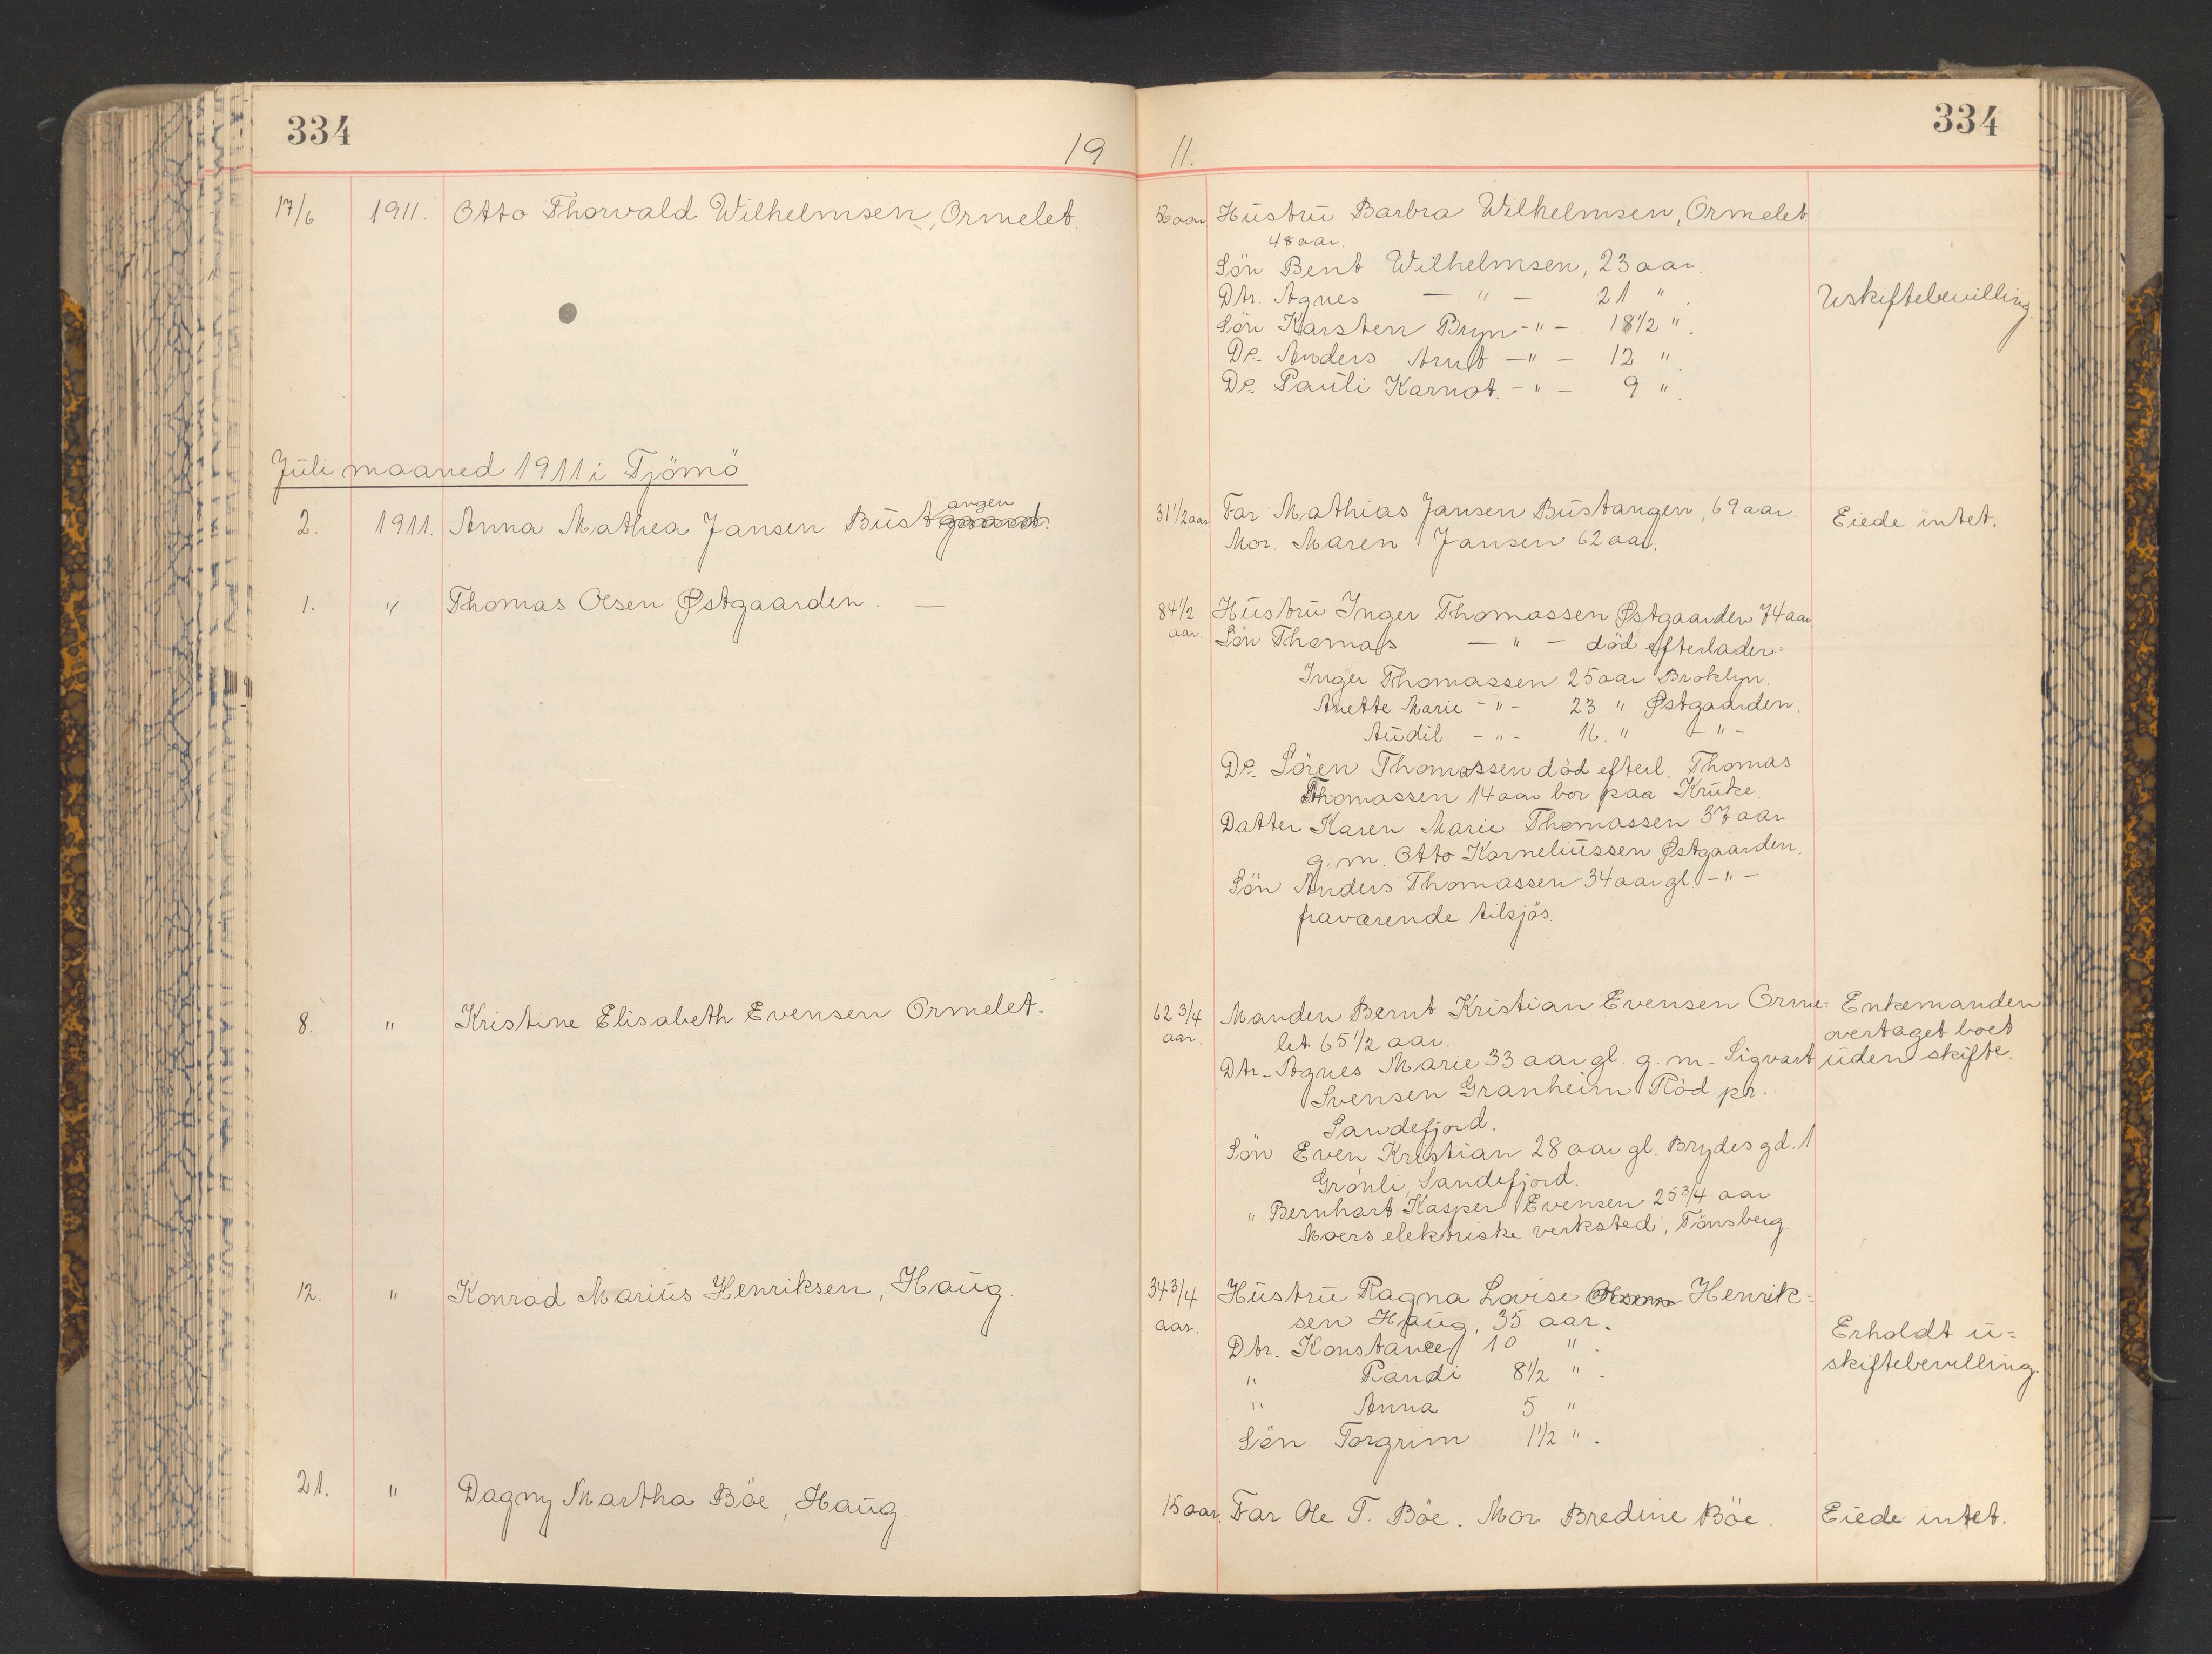 334
334
19 11.
17/6 1911. Otto Thorvald Wilhelmsen, Ormelet.
50 aar. Hustru Barbra Wilhelmsen, Ormelet
48 aar.
Sön Bent Wilhelmsen, 23 aar.
Dtr. Agnes — " — 21 ".
Sön Karsten Bryn - " - 18 1/2 ".
Do. Anders Arnt - " - 12 "
Do. Pauli Karnot. - " - 9 ".
Uskiftebevilling.
Juli maaned 1911 i Tjömö
angen
2. 1911. Anna Mathea Jansen Bustgaard.
31 1/2 aar Far Mathias Jansen Bustangen, 69 aar.
Mor. Maren Jansen 62 aar.
Eiede intet.
1. " Thomas Olsen Østgaarden. —
84 1/2 Hustru Inger Thomassen Østgaarden 74 aar
aar. Sön Thomas — " — död efterlader:
Inger Thomassen 25 aar Broklyn.
Anette Marie - " - 23 " Østgaarden.
Audil - " - 16. " - " -
Do. Sören Thomassen död efterl. Thomas
Thomassen 14 aar bor paa Kruke.
Datter Karen Marie Thomassen 37 aar
g. m. Otto Korneliussen Østgaarden.
Sön Anders Thomassen 34 aar gl. - " -
fraværende tilsjös.
8. " Kristine Elisabeth Evensen Ormelet.
62 3/4 Manden Bernt Kristian Evensen Orme-
aar. let 65 1/2 aar.
Dtr. Agnes Marie 33 aar gl. g. m. Sigvart
Svensen Granheim Röd pr.
Sandefjord.
Sön Even Kristian 28 aar gl. Brydesgd. 1
Grönli, Sandefjord.
" Bernhart Kasper Evensen 25 3/4 aar
Moers elektriske verksted, Tönsberg.
Enkemanden
overtaget boet
uden skifte.
12. " Konrad Marius Henriksen, Haug.
34 3/4 Hustru Ragna Lovise Olsen Henrik-
aar. sen Haug, 35 aar.
Dtr. Konstance 10 ".
" Randi 8 1/2 ".
" Anna 5 "
Sön Torgrim 1 1/2 ".
Erholdt u-
skiftebevilling.
21. " Dagny Martha Böe, Haug.
15 aar. Far Ole T. Böe. Mor Bredine Böe.
Eiede intet.